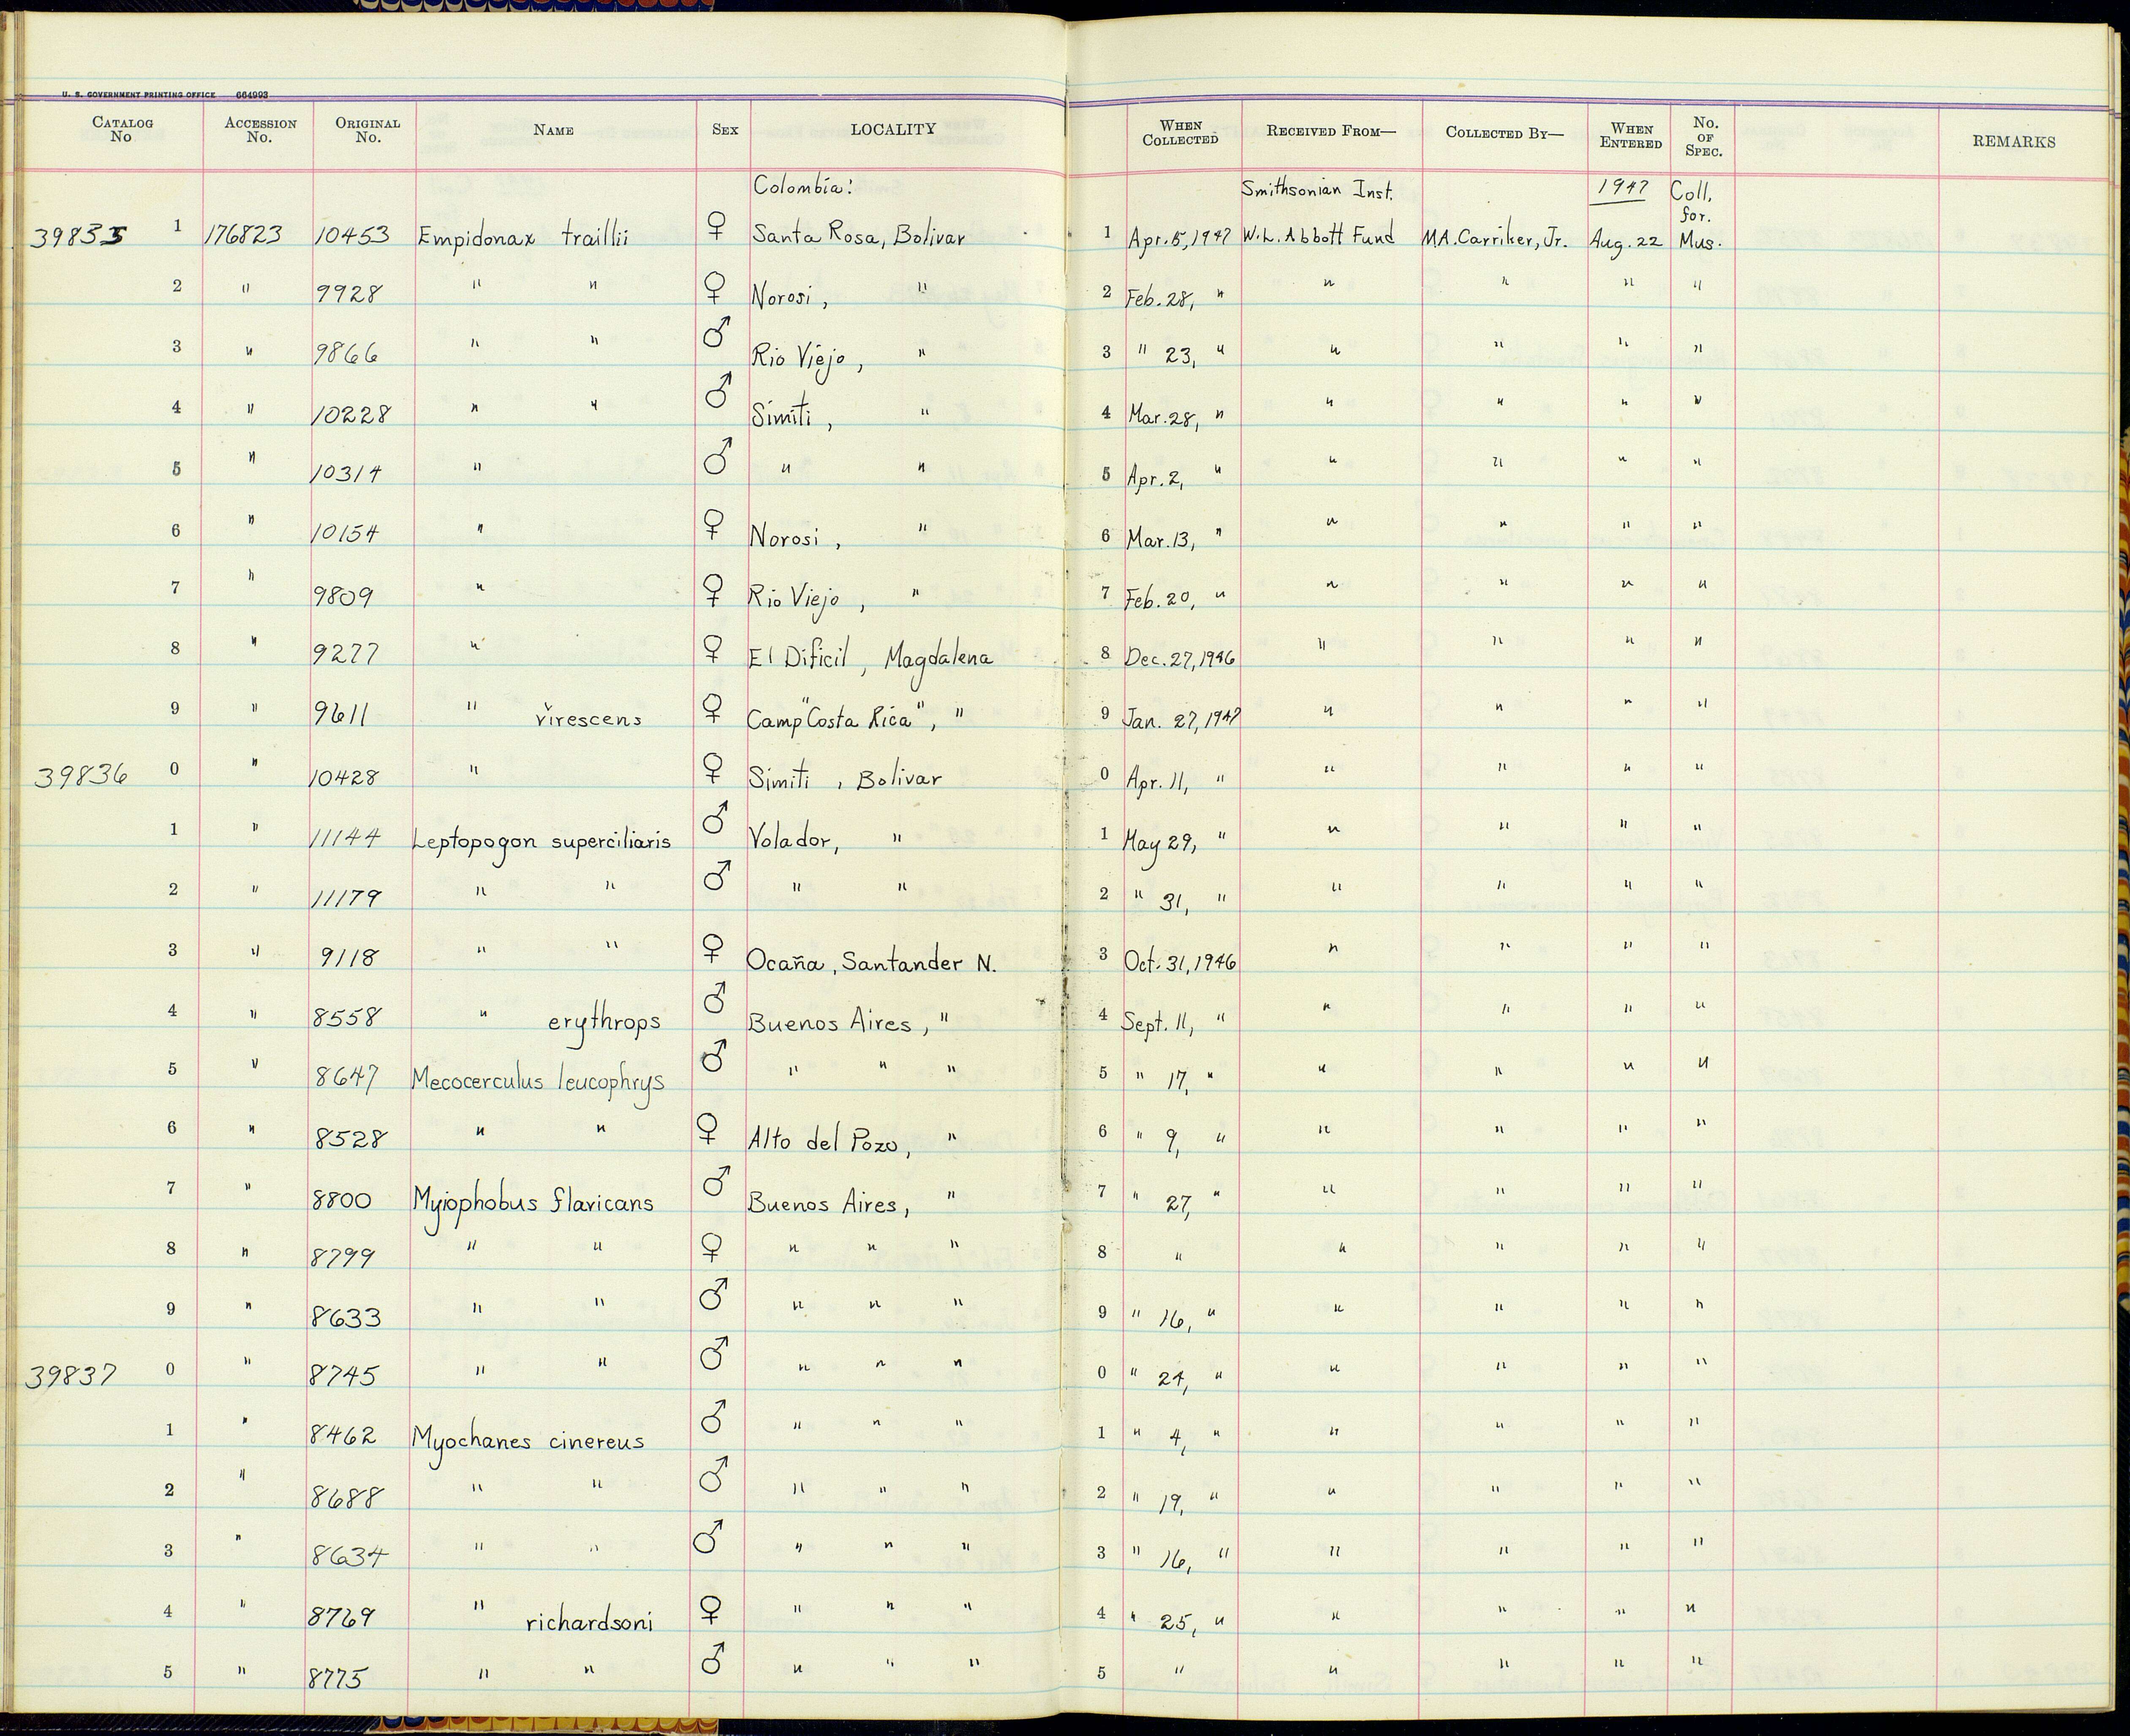 U. S. GOVERNMENT PRINTING OFFICE 664993
CATALOG No ACCESSION No. ORIGINAL No. NAME SEX LOCALITY WHEN COLLECTED RECEIVED FROM— COLLECTED BY— WHEN ENTERED No. OF SPEC. REMARKS
Colombia: Smithsonian Inst. 1947 Coll. for.
39835 1 176823 10453 Empidonax traillii ♀ Santa Rosa, Bolivar 1 Apr. 5, 1947 W.L. Abbott Fund M.A. Carriker, Jr. Aug. 22 Mus.
2 " 9928 " " ♀ Norosi, " 2 Feb. 28, " " " " "
3 " 9866 " " ♂ Rio Viejo, " 3 " 23, " " " " "
4 " 10228 " " ♂ Simiti, " 4 Mar. 28, " " " " "
5 " 10314 " ♂ " " 5 Apr. 2, " " " " "
6 " 10154 " ♀ Norosi, " 6 Mar. 13, " " " " "
7 " 9809 " ♀ Rio Viejo, " 7 Feb. 20, " " " " "
8 " 9277 " ♀ El Dificil, Magdalena 8 Dec. 27, 1946 " " " "
9 " 9611 " virescens ♀ Camp "Costa Rica", " 9 Jan. 27, 1947 " " " "
39836 0 " 10428 " ♀ Simiti, Bolivar 0 Apr. 11, " " " " "
1 " 11144 Leptopogon superciliaris ♂ Volador, " 1 May 29, " " " " "
2 " 11179 " " ♂ " " 2 " 31, " " " " "
3 " 9118 " " ♀ Ocaña, Santander N. 3 Oct. 31, 1946 " " " "
4 " 8558 " erythrops ♂ Buenos Aires, " 4 Sept. 11, " " " " "
5 " 8647 Mecocerculus leucophrys ♂ " " " 5 " 17, " " " " "
6 " 8528 " " ♀ Alto del Pozo, " 6 " 9, " " " " "
7 " 8800 Myiophobus flavicans ♂ Buenos Aires, " 7 " 27, " " " " "
8 " 8799 " " ♀ " " " 8 " " " " "
9 " 8633 " " ♂ " " " 9 " 16, " " " " "
39837 0 " 8745 " " ♂ " " " 0 " 24, " " " " "
1 " 8462 Myochanes cinereus ♂ " " " 1 " 4, " " " " "
2 " 8688 " " ♂ " " " 2 " 19, " " " " "
3 " 8634 " " ♂ " " " 3 " 16, " " " " "
4 " 8769 " richardsoni ♀ " " " 4 " 25, " " " " "
5 " 8775 " " ♂ " " " 5 " " " " "